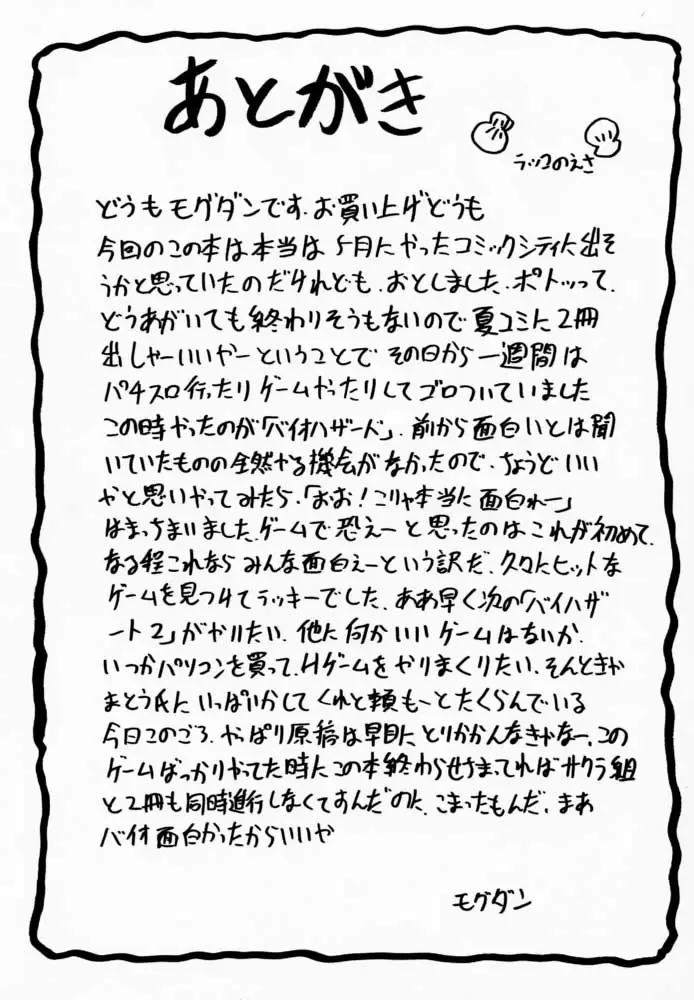 あとがき
ラッコのえさ
どうもモグダンです。お買い上げどうも
今回のこの本は本当は5月にやったコミックシティに出そ
うかと思っていたのだけれども、おとしました、ポトッって、
どうあがいても終わりそうもないので夏コミに2冊
出しゃーいいやーということでその日から一週間は
パチスロ行ったりゲームやったりしてゴロついていました
この時やったのが「バイオハザード」、前から面白いとは聞
いていたものの全然やる機会がなかったので、ちょうどいい
やと思いやってみたら、「おお!こりゃ本当に面白れー」
はまっちまいました。ゲームで恐えーと思ったのはこれが初めて、
なる程これならみんな面白えーという訳だ、久々にヒットな
ゲームを見つけてラッキーでした、ああ早く次の「バイハザ
ード2」がやりたい、他に何かいいゲームはないか、
いつかパソコンを買って、Hゲームをやりまくりたい、そんときゃ
まとう氏にいっぱいかしてくれと頼もーとたくらんでいる
今日このごろ、やっぱり原稿は早目にとりかかんなきゃなー、この
ゲームばっかりやってた時にこの本終わらせちまってればサクラ組
と2冊も同時進行しなくてすんだのに、こまったもんだ、まあ
バイオ面白かったからいいや
モグダン